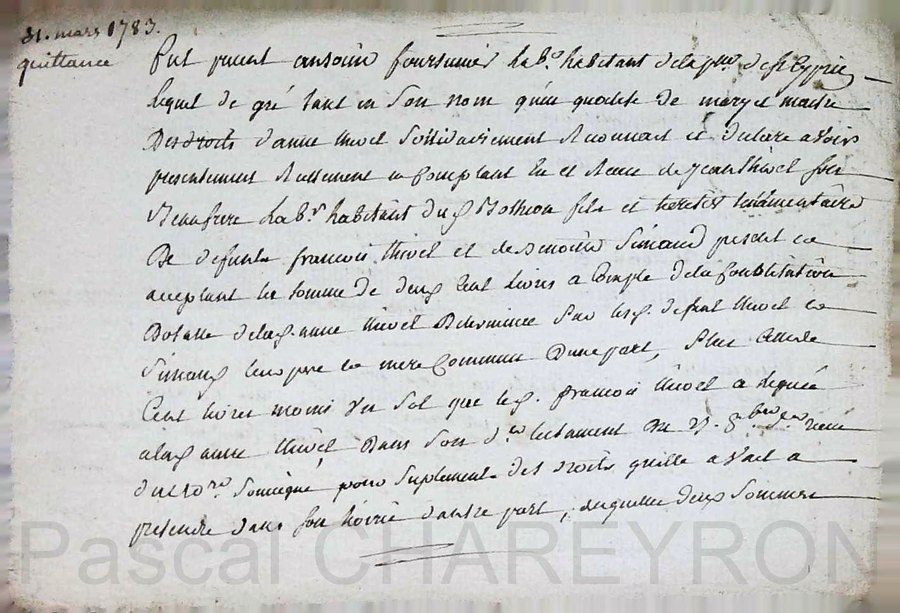 31. mars 1783.
quittance
fut present antoine foursinier lab.r habitant de la p.sse de st Cyprien
lequel de gré tant en son nom qu'en qualité de mary et maitre
des droits d'anne thivel solidairement reconnait et declare avoir
presentement reellement et comptant eu et receu de jean thivel son
beau frere lab.r habitant du d. fils et heretier testamentaire
de defunts francois thivel et de simand present et
acceptant la somme de deux cent livres a compte de la constitution
dotalle de lad. anne thivel determinée par lesd. defunt thivel et
simand leur pere et mere commun d'une part, plus celle de
cent livres moins un sol que led. francois thivel a leguée
a lad. anne thivel dans son d.er testament du 25. 8bre d.er receu
du no.re soussigné pour suplement des droits qu'elle avait a
pretendre dans son hoirie d'autre part, desquelles deux sommes
Pascal CHAREYRON